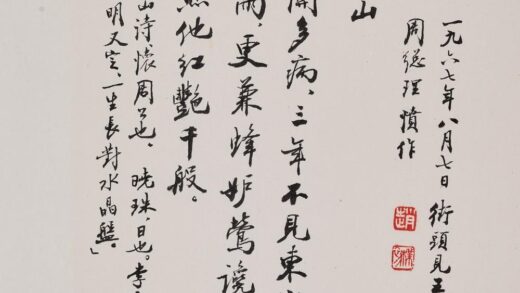 一九六七年八月七日街頭見
周總理憤作
山
開多病，三年不見東
雨，更兼蜂妒鶯讒
他紅艷千般。
山诗懷周公也。曉珠，日也。李
明又定，一生長對水晶盤。」